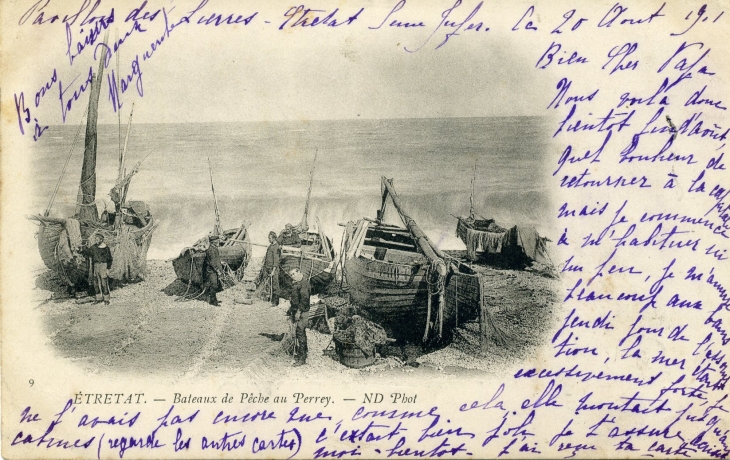 Pavillon des Lierres - Etretat Seine Infer. Ces 20 Août 1901
Bons baisers
à tous deux
Marguerite
Bien cher Papa
Nous voilà donc
bientôt fin d'août,
quel bonheur de
retourner à la capitale
mais je commence
à m'habituer ici
un peu, je m'amuse
beaucoup aux bains
jeudi jour de l'assomp
tion, la mer était
excessivement forte je
ne l'avais pas encore vue, comme cela elle montait jusqu'aux
cabines (regarde les autres cartes) c'était bien joli je t'assure
moi - bientôt - J'ai reçu ta carte
9 ÉTRETAT. — Bateaux de Pêche au Perrey. — ND Phot